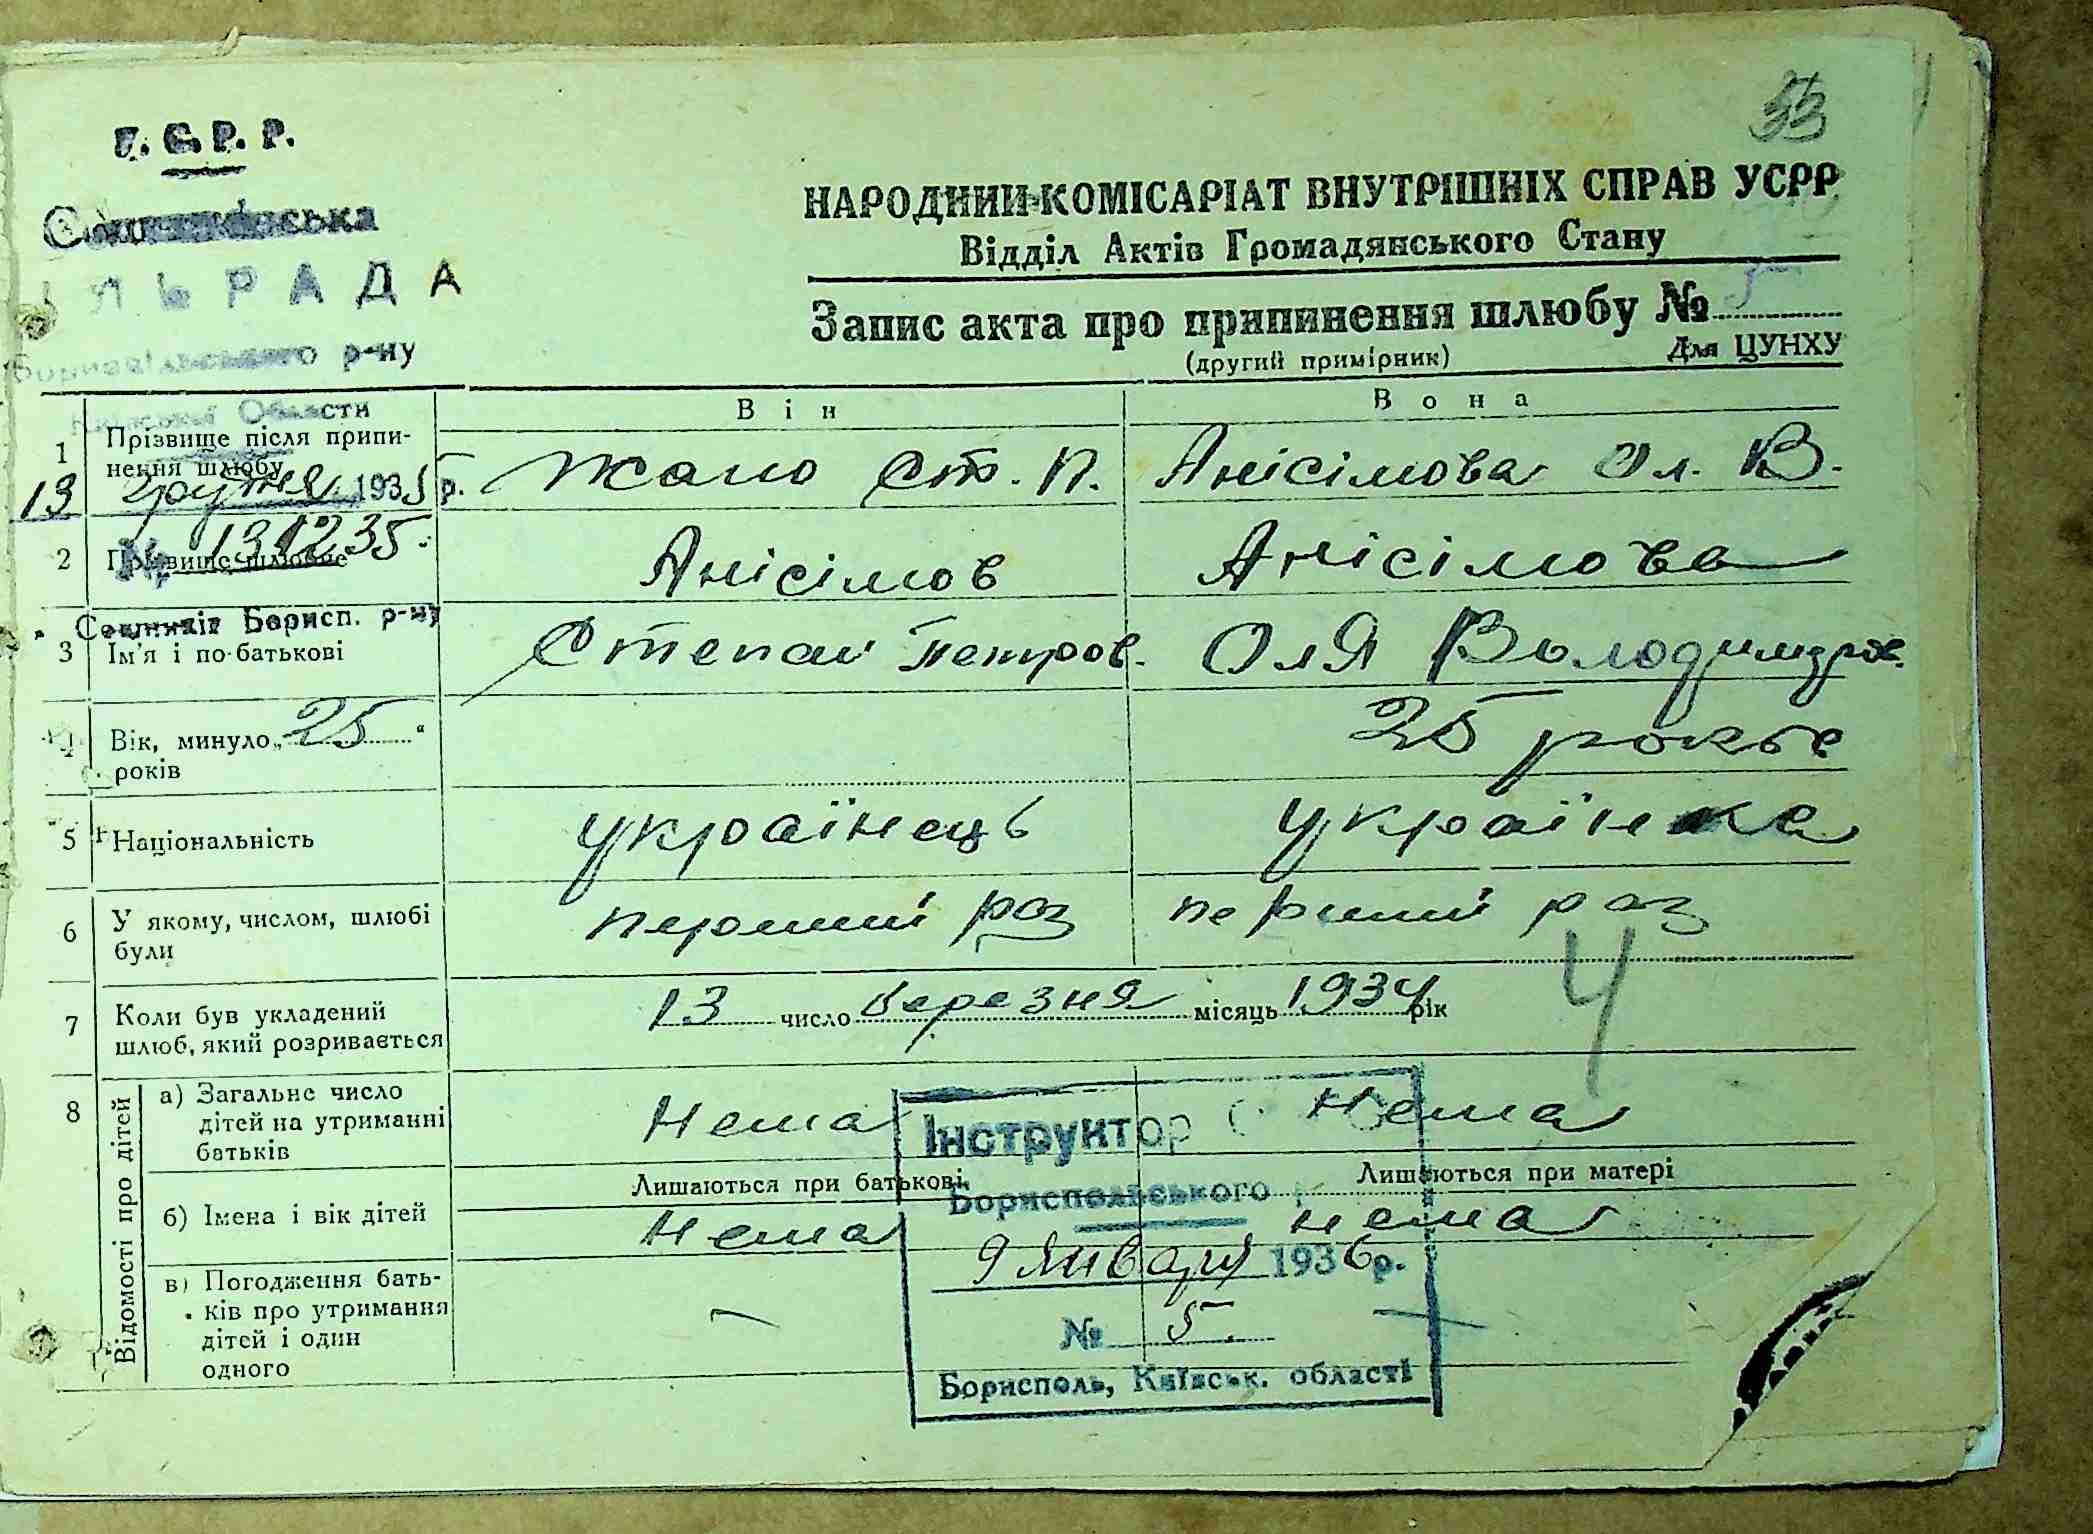 У. С. Р. Р.
ЛЬРАДА
р-ну
Області
13 грудня 1935 р.
№ 131235.
Борисп. р-ну
33
НАРОДНИЙ КОМІСАРІАТ ВНУТРІШНІХ СПРАВ УСРР
Відділ Актів Громадянського Стану
Запис акта про припинення шлюбу № 5
(другий примірник) Для ЦУНХУ
Він Вона
1 Прізвище після припинення шлюбу Ст. П. Анісімова Ол. В.
2 Прізвище шлюбне Анісімов Анісімова
3 Ім'я і по-батькові Степан Петров. Оля
4 Вік, минуло „25“ років 25 років
5 Національність українець українка
6 У якому, числом, шлюбі були перший раз перший раз
4
7 Коли був укладений шлюб, який розривається 13 число березня місяць 1934 рік
8 Відомості про дітей
а) Загальне число дітей на утриманні батьків нема нема
Лишаються при батькові Лишаються при матері
б) Імена і вік дітей нема нема
в) Погодження батьків про утримання дітей і один одного — —
Інструктор
Бориспольського
9 января 1936 р.
№ 5.
Борисполь, Київськ. області